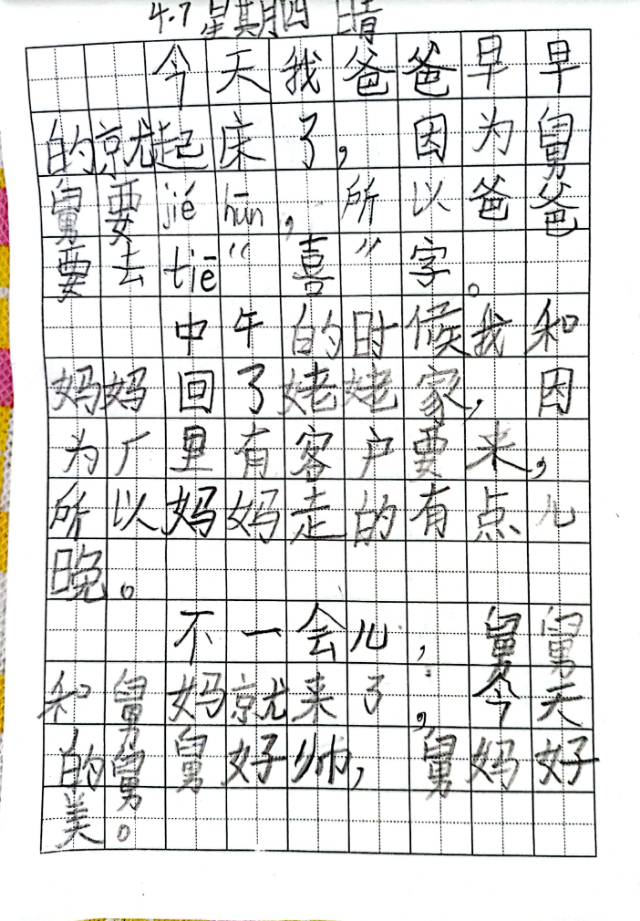 4.7 星期四 晴
今天我爸爸早早
的就起床了，因为舅
舅要jié hūn，所以爸爸
要去tiē“喜”字。
中午的时候我和
妈妈回了姥姥家，因
为厂里有客户要来，
所以妈妈走的有点儿
晚。
不一会儿，舅舅
和舅妈就来了，今天
的舅舅好帅，舅妈好
美。